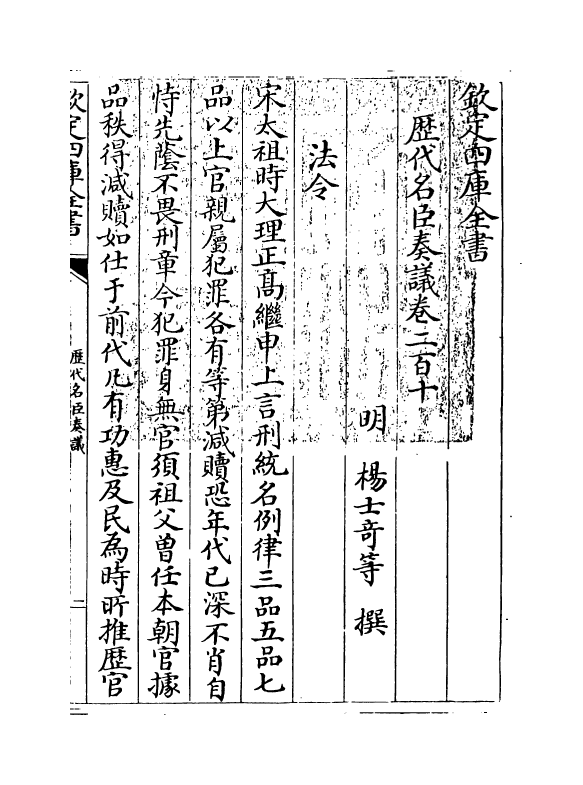 欽定四庫全書
歷代名臣奏議卷二百十
明 楊士竒等 撰
法令
宋太祖時大理正髙繼申上言刑統名例律三品五品七
品以上官親屬犯罪各有等第減贖恐年代已深不肖自
恃先蔭不畏刑章今犯罪身無官須祖父曾任本朝官據
品秩得減贖如仕于前代凡有功惠及民為時所推歷官
欽定四庫全書
歷代名臣奏議